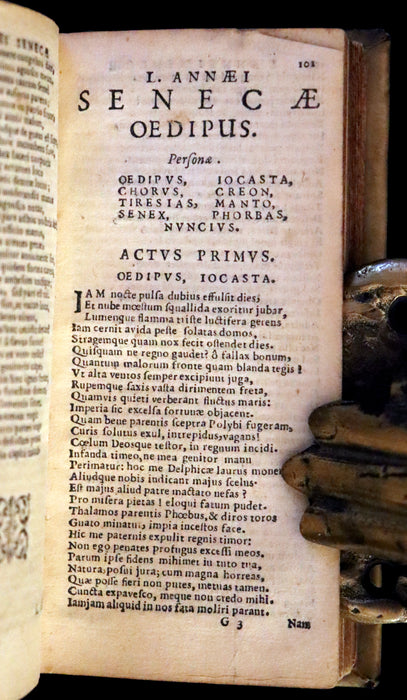 101
L. ANNÆI
SENECÆ
OEDIPUS.
Personæ.
OEDIPVS, IOCASTA,
CHORVS, CREON,
TIRESIAS, MANTO,
SENEX, PHORBAS,
NVNCIVS.
ACTVS PRIMVS.
OEDIPVS, IOCASTA.
IAM nocte pulsa dubius effulsit dies;
Et nube mœstum squallida exoritur jubar,
Lumenque flamma triste luctifera gerens
Iam cernit avida peste solatas domos,
Stragemque quam nox fecit ostendet dies.
Quisquam ne regno gaudet? ô fallax bonum,
Quantum malorum fronte quam blanda tegis!
Vt alta ventos semper excipiunt juga,
Rupemque saxis vasta dirimentem freta,
Quamvis quieti verberant fluctus maris:
Imperia sic excelsa fortunæ objacent.
Quam bene parentis sceptra Polybi fugeram,
Curis solutus exul, intrepidus, vagans!
Cœlum Deosque testor, in regnum incidi.
Infanda timeo, ne mea genitor manu
Perimatur: hoc me Delphicæ laurus monen
Aliudque nobis indicant majus scelus.
Est majus aliud patre mactato nefas?
Pro misera pietas! eloqui fatum pudet.
Thalamos parentis Phœbus, & diros toros
Guato minatur, impia incestos face.
Hic me paternis expulit regnis timor:
Non ego penates profugus excessi meos.
Parum ipse fidens mihimet in tuto tua,
Natura, posui jura; cum magna horreas,
Quæ posse fieri non putes, metuas tamen.
Cuncta expavesco, meque non credo mihi.
Iamjam aliquid in nos fata moliri parant.
G 3 Nam